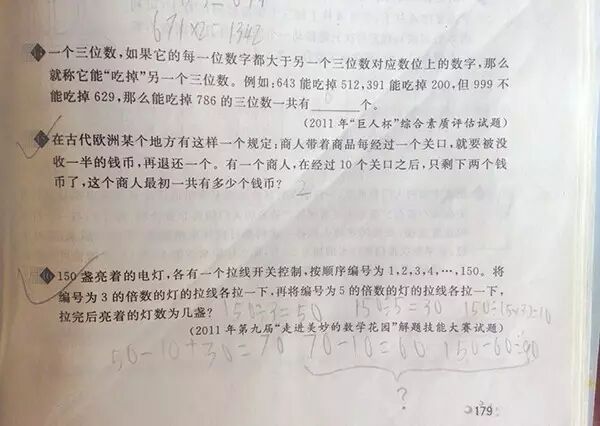 671×2=1342
一个三位数,如果它的每一位数字都大于另一个三位数对应数位上的数字,那么
就称它能“吃掉”另一个三位数。例如:643 能吃掉 512,391 能吃掉 200,但 999 不
能吃掉 629,那么能吃掉 786 的三位数一共有______个。
(2011 年“巨人杯”综合素质评估试题)
在古代欧洲某个地方有这样一个规定:商人带着商品每经过一个关口,就要被没
收一半的钱币,再退还一个。有一个商人,在经过 10 个关口之后,只剩下两个钱
币了,这个商人最初一共有多少个钱币? 2
150 盏亮着的电灯,各有一个拉线开关控制,按顺序编号为 1,2,3,4,…,150。将
编号为 3 的倍数的灯的拉线各拉一下,再将编号为 5 的倍数的灯的拉线各拉一下,
拉完后亮着的灯数为几盏? 150÷3=50 150÷5=30 150÷(5×3)=10
(2011 年第九届“走进美妙的数学花园”解题技能大赛试题)
50-10+30=70 70-10=60 150-60=90
?
179